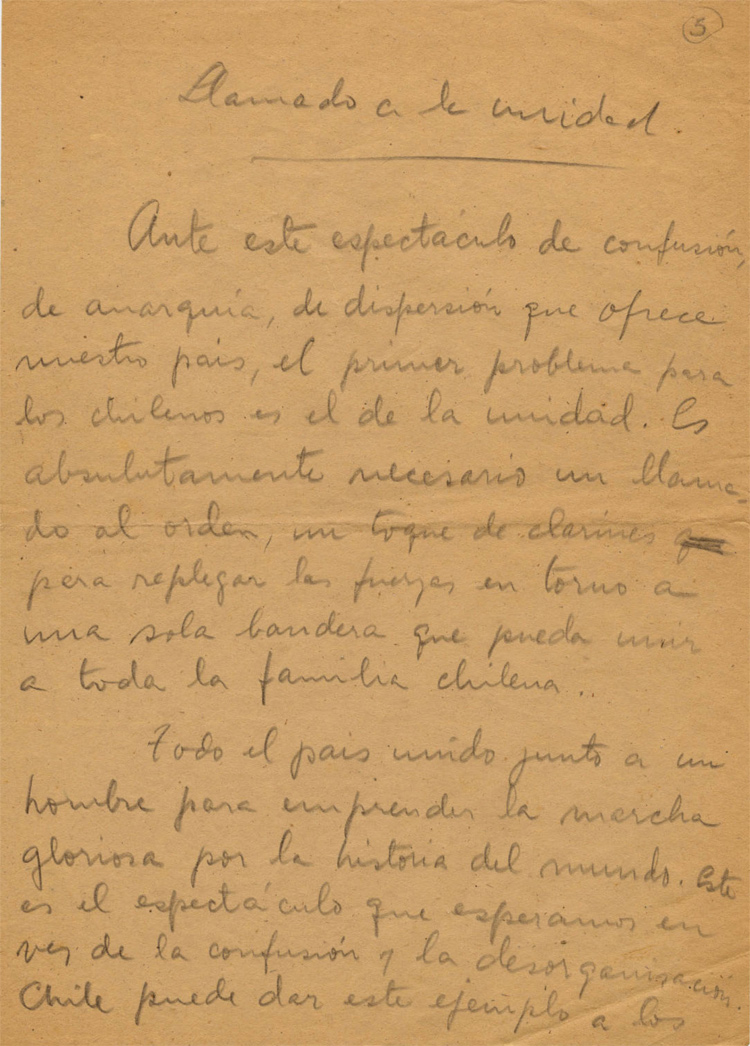 5
Llamado a la unidad.
Ante este espectáculo de confusión,
de anarquía, de dispersión que ofrece
nuestro país, el primer problema para
los chilenos es el de la unidad. Es
absulutamente necesario un llama-
do al orden, un toque de clarines
para replegar las fuerzas en torno a
una sola bandera que pueda unir
a toda la familia chilena..
Todo el país unido junto a un
hombre para emprender la marcha
gloriosa por la historia del mundo. Este
es el espectáculo que esperamos en
vez de la confusión y la desorganisación.
Chile puede dar este ejemplo a los